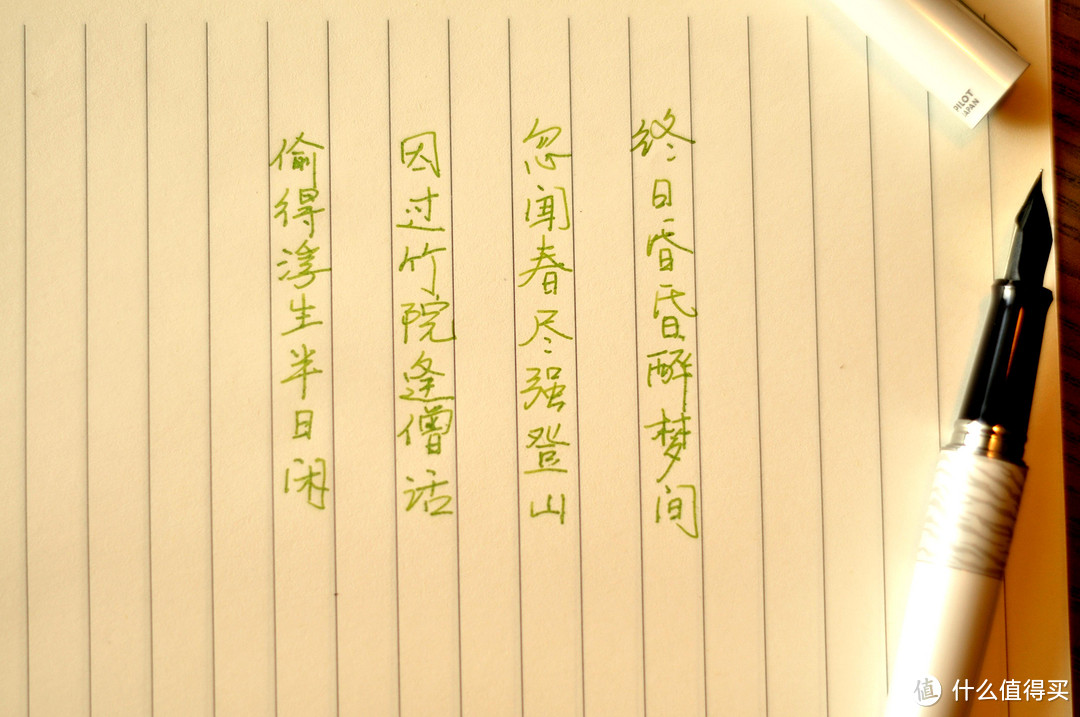 终日昏昏醉梦间
忽闻春尽强登山
因过竹院逢僧话
偷得浮生半日闲
PILOT
JAPAN
值 什么值得买